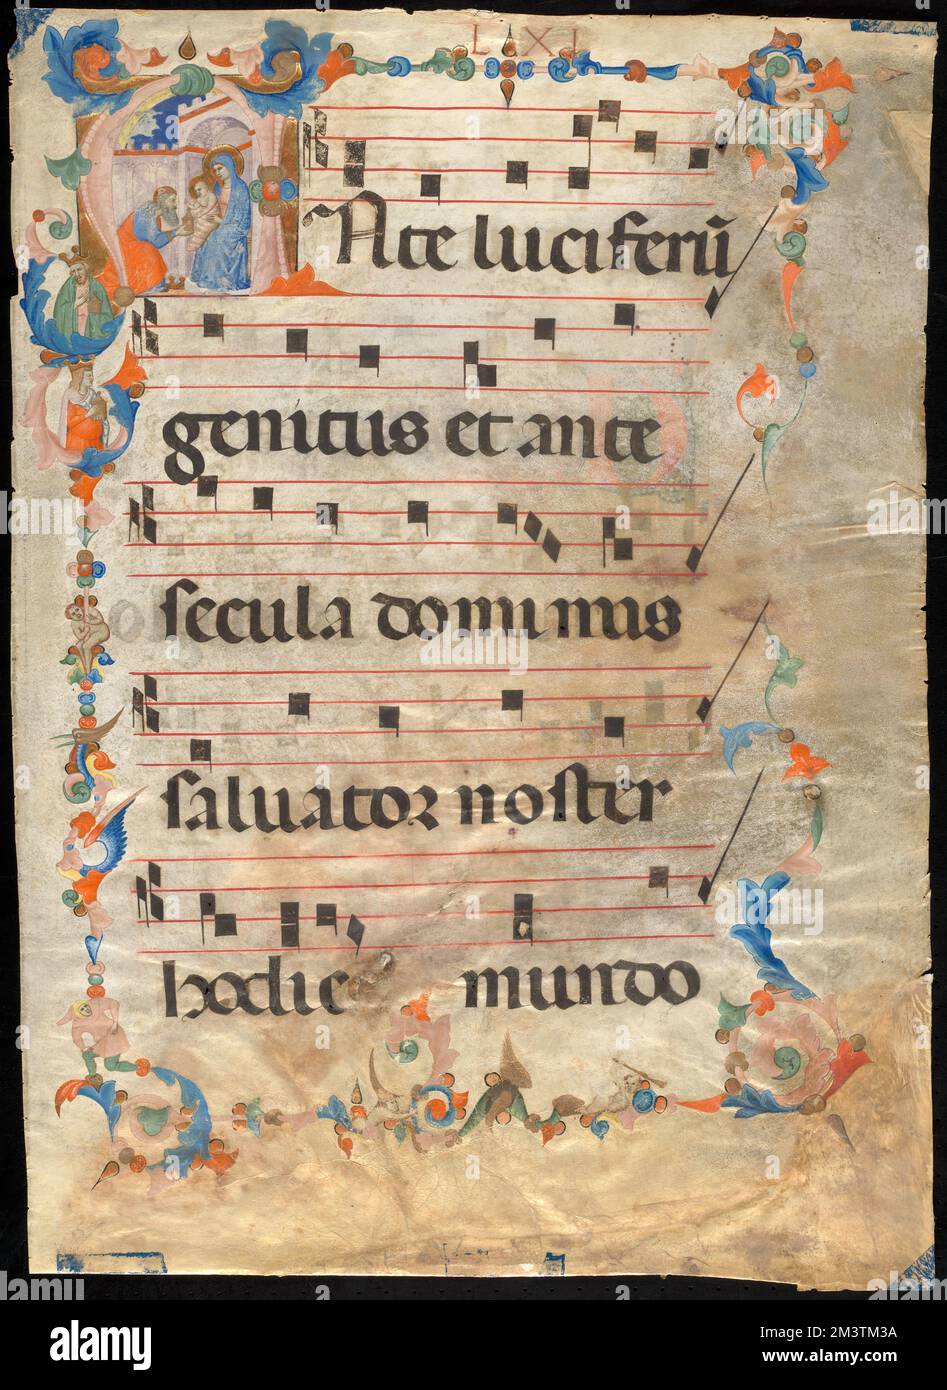 LXI
Ante luciferū
genitus et ante
secula dominus
salvator noster
hodie mundo
alamy
Image ID: 2M3TM3A
www.alamy.com